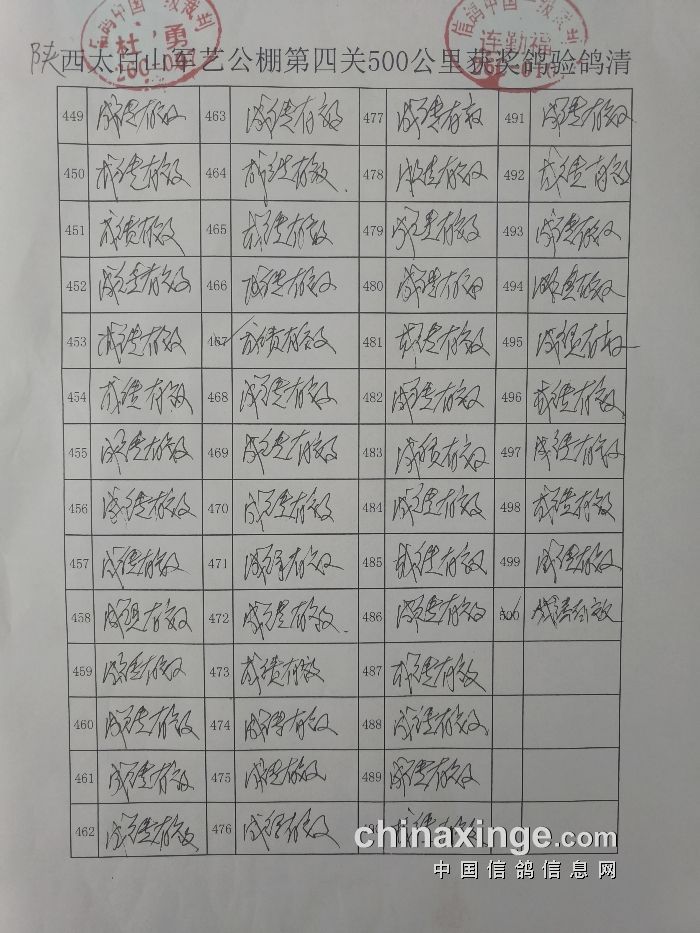 信鸽中国一级裁判
杜勇
信鸽中国一级裁判
连勤福
陕西太白山军艺公棚第四关500公里获奖鸽验鸽清
449 成绩有效 463 成绩有效 477 成绩有效 491 成绩有效
450 成绩有效 464 成绩有效 478 成绩有效 492 成绩有效
451 成绩有效 465 成绩有效 479 成绩有效 493 成绩有效
452 成绩有效 466 成绩有效 480 成绩有效 494 成绩有效
453 成绩有效 467 成绩有效 481 成绩有效 495 成绩有效
454 成绩有效 468 成绩有效 482 成绩有效 496 成绩有效
455 成绩有效 469 成绩有效 483 成绩有效 497 成绩有效
456 成绩有效 470 成绩有效 484 成绩有效 498 成绩有效
457 成绩有效 471 成绩有效 485 成绩有效 499 成绩有效
458 成绩有效 472 成绩有效 486 成绩有效 500 成绩有效
459 成绩有效 473 成绩有效 487 成绩有效
460 成绩有效 474 成绩有效 488 成绩有效
461 成绩有效 475 成绩有效 489 成绩有效
462 成绩有效 476 成绩有效 490 成绩有效
chinaxinge.com
中国信鸽信息网